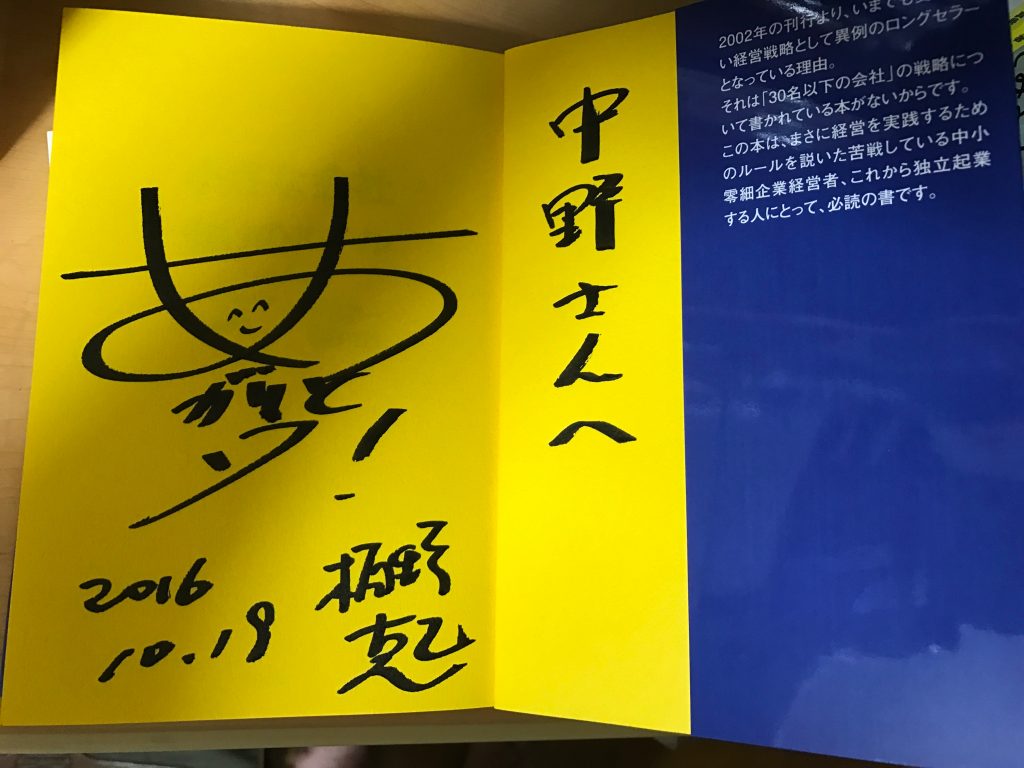 2002年の刊行より、いまでも
い経営戦略として異例のロングセラー
となっている理由。
それは「30名以下の会社」の戦略につ
いて書かれている本がないからです。
この本は、まさに経営を実践するため
のルールを説いた苦戦している中小
零細企業経営者、これから独立起業
する人にとって、必読の書です。
中野さんへ
2016
10.19
栢野
克己